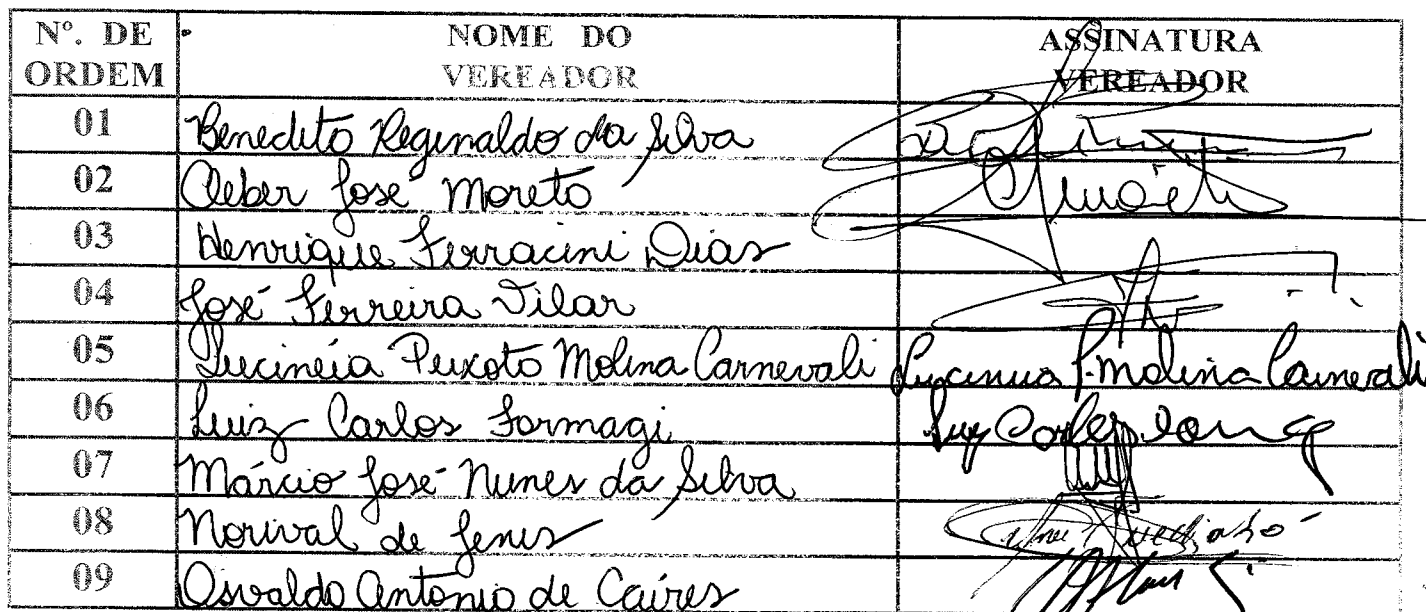 Nº. DE ORDEM NOME DO VEREADOR ASSINATURA VEREADOR
01 Benedito Reginaldo da Silva
02 Cleber José Moreto
03 Henrique Ferracini Dias
04 José Ferreira Vilar
05 Lucinéia Peixoto Molina Carnevali Lucineia P. Molina Carnevali
06 Luiz Carlos Formagi Luiz Carlos
07 Márcio José Nunes da Silva
08 Norival de Jenis
09 Osvaldo Antonio de Caires